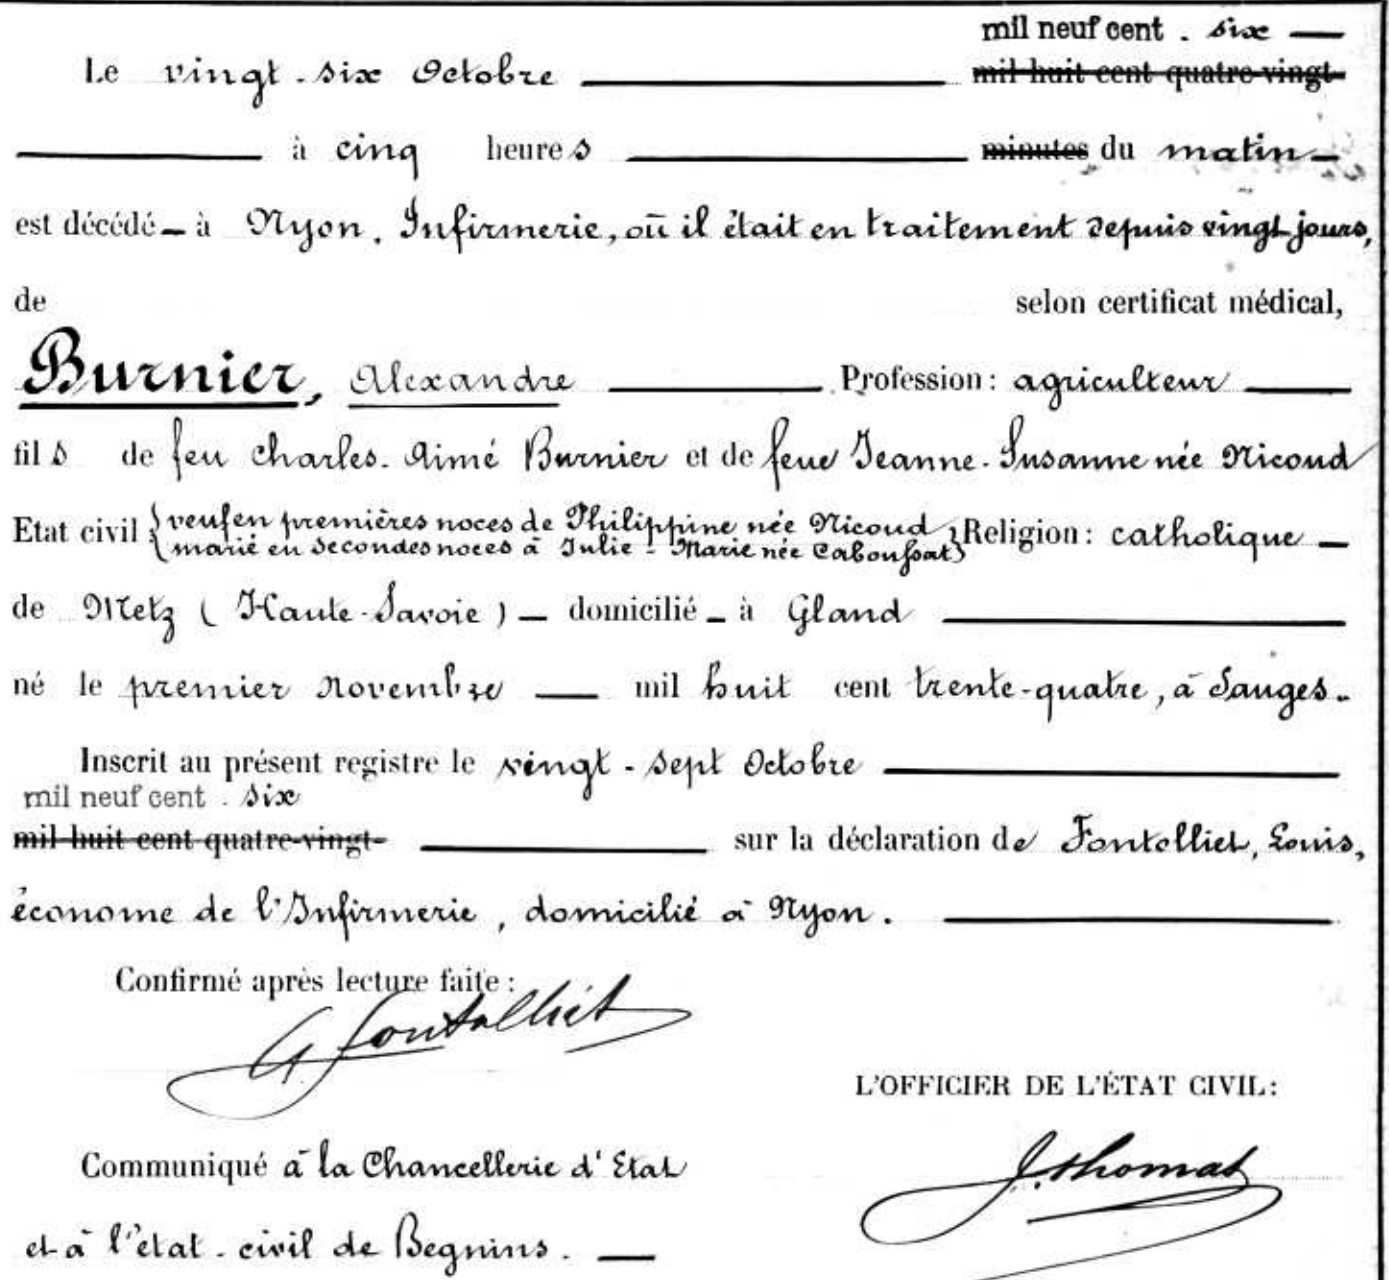 mil neuf cent . six
Le vingt-six Octobre mil huit cent quatre-vingt-
à cinq heures minutes du matin
est décédé à Nyon, Infirmerie, où il était en traitement depuis vingt jours,
de selon certificat médical,
Burnier, Alexandre Profession: agriculteur
fils de feu Charles-Aimé Burnier et de feue Jeanne-Susanne née Nicoud
Etat civil { veuf en premières noces de Philippine née Nicoud } Religion: catholique
{ marié en secondes noces à Julie-Marie née Caboussat }
de Metz (Haute-Savoie) domicilié à Gland
né le premier Novembre mil huit cent trente-quatre, à Sauges.
Inscrit au présent registre le vingt-sept Octobre
mil neuf cent . six
mil huit cent quatre-vingt- sur la déclaration de Fontolliet, Louis,
économe de l'Infirmerie, domicilié à Nyon.
Confirmé après lecture faite:
Fontolliet
L'OFFICIER DE L'ÉTAT CIVIL:
J. Thomas
Communiqué à la Chancellerie d'Etat
et à l'état-civil de Begnins.